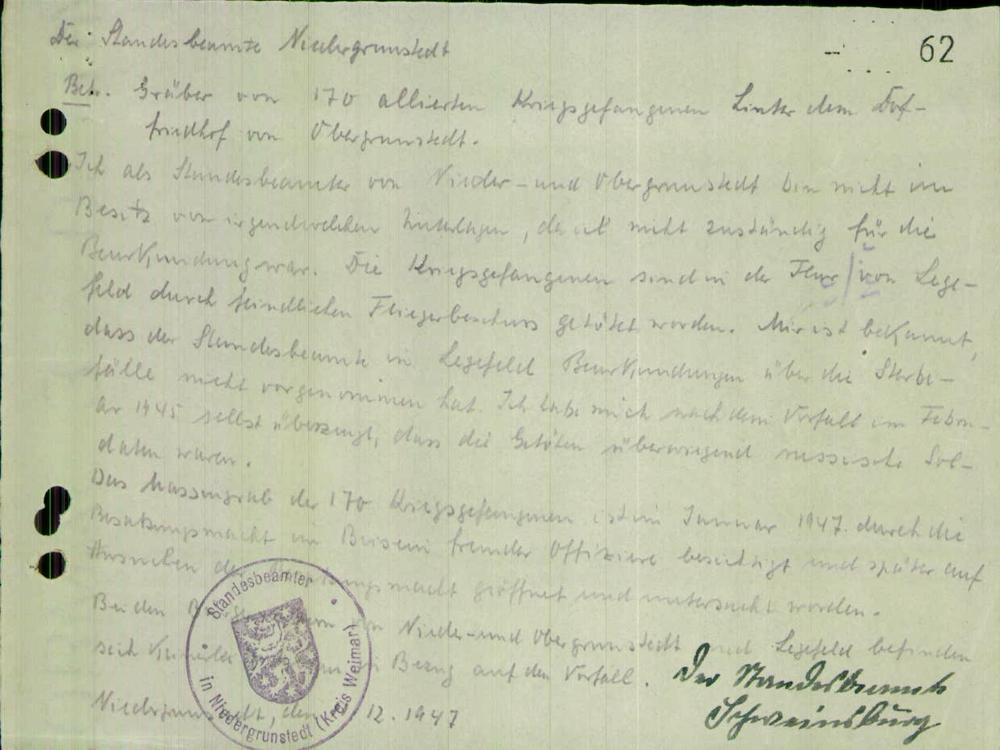 Der Standesbeamte Niedergrunstedt
62
Betr. Gräber von 170 alliierten Kriegsgefangenen hinter dem Dof-
friedhof von Obergrunstedt.
Ich als Standesbeamter von Nieder- und Obergrunstedt bin nicht im
Besitz von irgendwelchen Unterlagen, da ich nicht zuständig für die
Beurkundung war. Die Kriegsgefangenen sind in der Flur von Lege-
feld durch feindlichen Fliegerbeschuss getötet worden. Mir ist bekannt,
dass der Standesbeamte in Legefeld Beurkundungen über die Sterbe-
fälle nicht vorgenommen hat. Ich habe mich nach dem Vorfall im Febru-
ar 1945 selbst überzeugt, dass die Getöten überwiegend russische Sol-
daten waren.
Das Massengrab der 170 Kriegsgefangenen ist im Januar 1947 durch die
Besatzungsmacht im Beisein fremder Offiziere besichtigt und später auf
Ansuchen der geöffnet und untersucht worden.
Bei den von Nieder- und Obergrunstedt und Legefeld befinden
sich in Bezug auf den Vorfall.
Der Standesbeamte
Schweinsburg
Niedergrunstedt, den 12.1947
Standesbeamter
in Niedergrunstedt (Kreis Weimar)